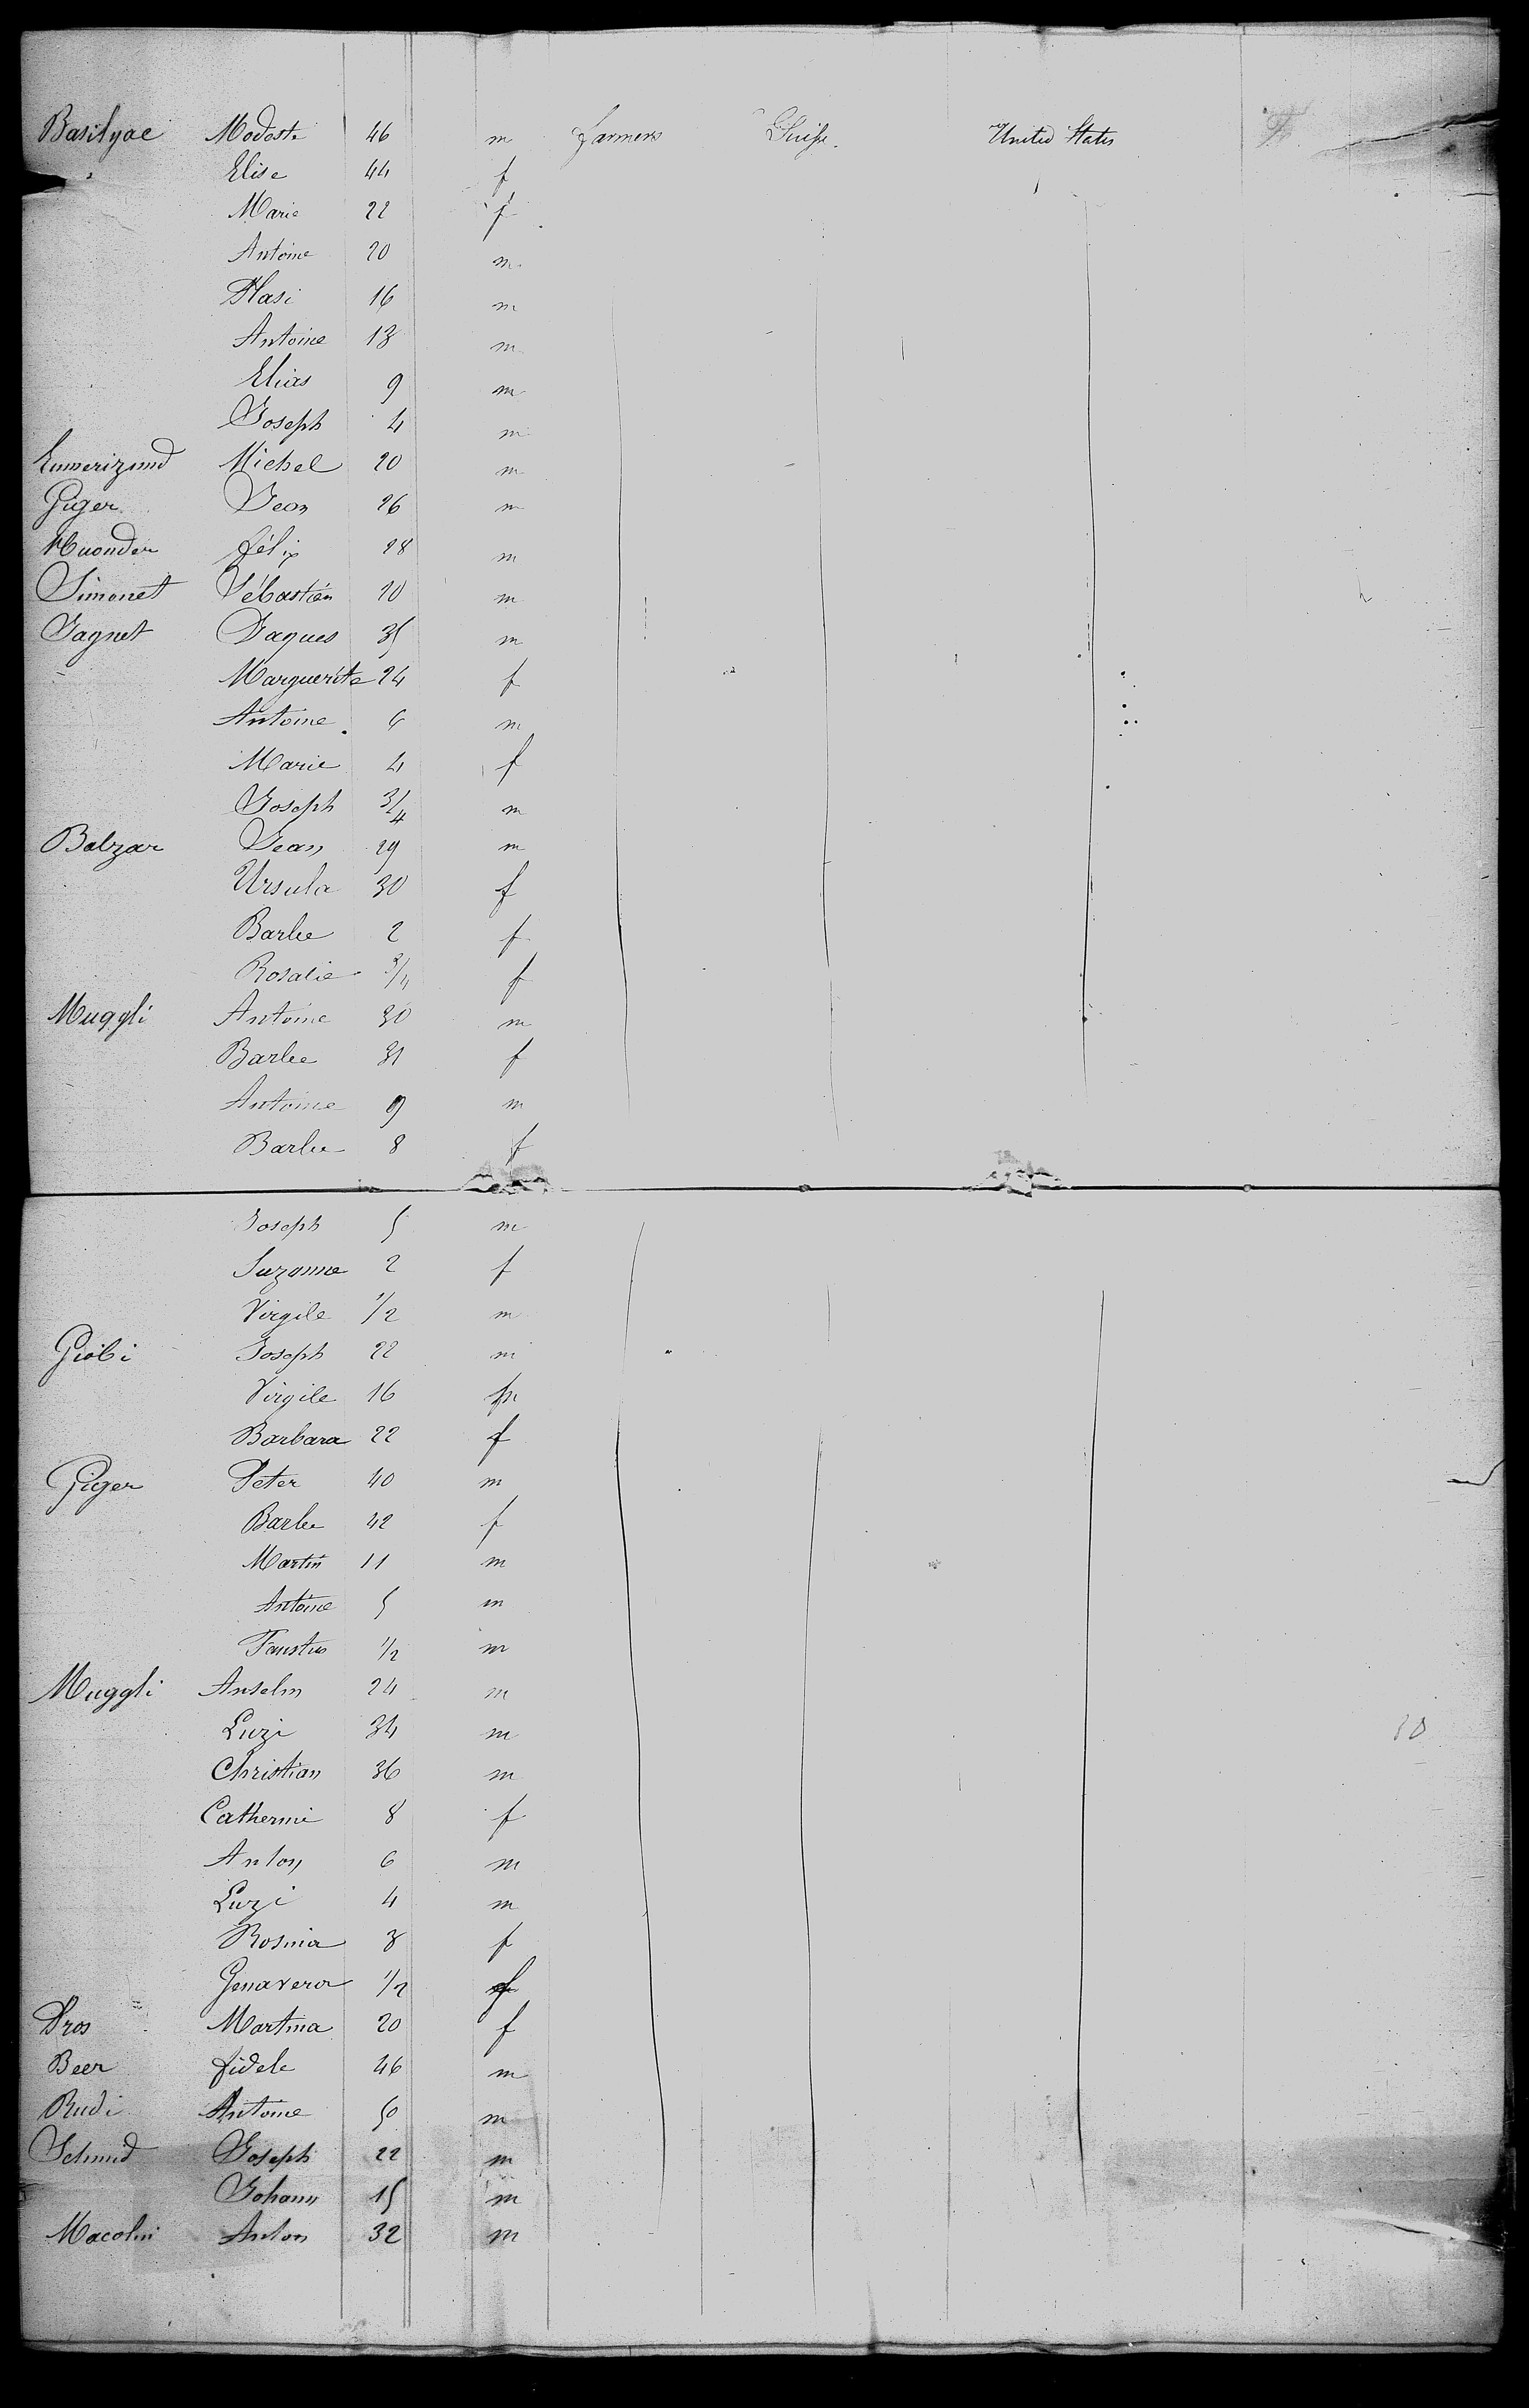 Basilyae Modeste 46 m farmers Suisse. United States
Elise 44 f
Marie 22 f
Antoine 20 m
Plasi 16 m
Antoine 13 m
Elias 9 m
Joseph 4 m
Michel 20 m
Giger Jean 26 m
Muonder félix 28 m
Simonet Sébastién 20 m
Jagnet Jaques 35 m
Marguerite 24 f
Antoine 6 m
Marie 4 f
Joseph 3/4 m
Balzar Jean 29 m
Ursula 30 f
Barbe 2 f
Rosalie 3/4 f
Muggli Antoine 30 m
Barbe 31 f
Antoine 9 m
Barbe 8 f
Joseph 5 m
Suzanne 2 f
Virgile 1/2 m
Giobi Joseph 22 m
Virgile 16 m
Barbara 22 f
Giger Peter 40 m
Barbe 42 f
Martin 11 m
Antoine 5 m
Faustus 1/2 m
Muggli Anselm 24 m
Luzi 34 m
Christian 36 m
Catherini 8 f
Anton 6 m
Luzi 4 m
Rosina 3 f
Genavera 1/2 f
Dros Martina 20 f
Beer fidele 46 m
Rudi Antoine 50 m
Schmid Joseph 22 m
Johann 15 m
Macolin Anton 32 m